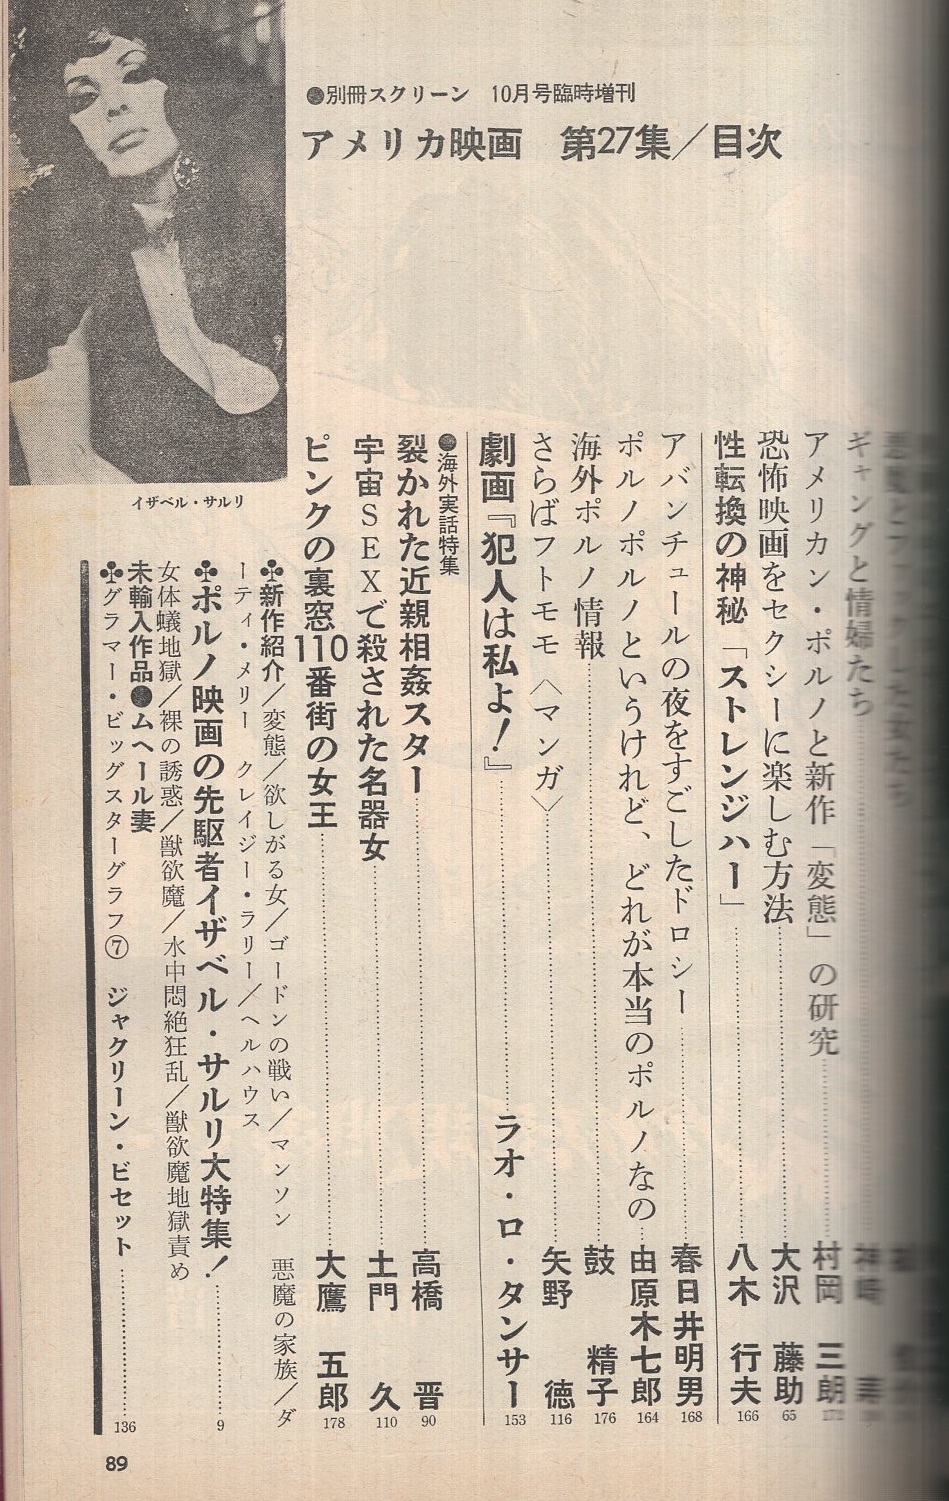 ●別冊スクリーン　10月号臨時増刊
アメリカ映画　第27集／目次
ギャングと情婦たち
アメリカン・ポルノと新作「変態」の研究……村岡　三朗
恐怖映画をセクシーに楽しむ方法……大沢　藤助　65
性転換の神秘「ストレンジハー」……八木　行夫　166
アバンチュールの夜をすごしたドロシー……春日井明男　168
ポルノポルノというけれど、どれが本当のポルノなの…由原木七郎　164
海外ポルノ情報……鼓　精子　176
さらばフトモモ〈マンガ〉……矢野　徳　116
劇画『犯人は私よ！』……ラオ・ロ・タンサー　153
●海外実話特集
裂かれた近親相姦スター……高橋　晋　90
宇宙ＳＥＸで殺された名器女……土門　久　110
ピンクの裏窓110番街の女王……大鷹　五郎　178
♣新作紹介／変態／欲しがる女／ゴードンの戦い／マンソン　悪魔の家族／ダ
ーティ・メリー　クレイジー・ラリー／ヘルハウス
♣ポルノ映画の先駆者イザベル・サルリ大特集！……9
女体蟻地獄／裸の誘惑／獣欲魔／水中悶絶狂乱／獣欲魔地獄責め
未輸入作品●ムヘール妻
♣グラマー・ビッグスターグラフ⑦　ジャクリーン・ビセット……136
イザベル・サルリ
89